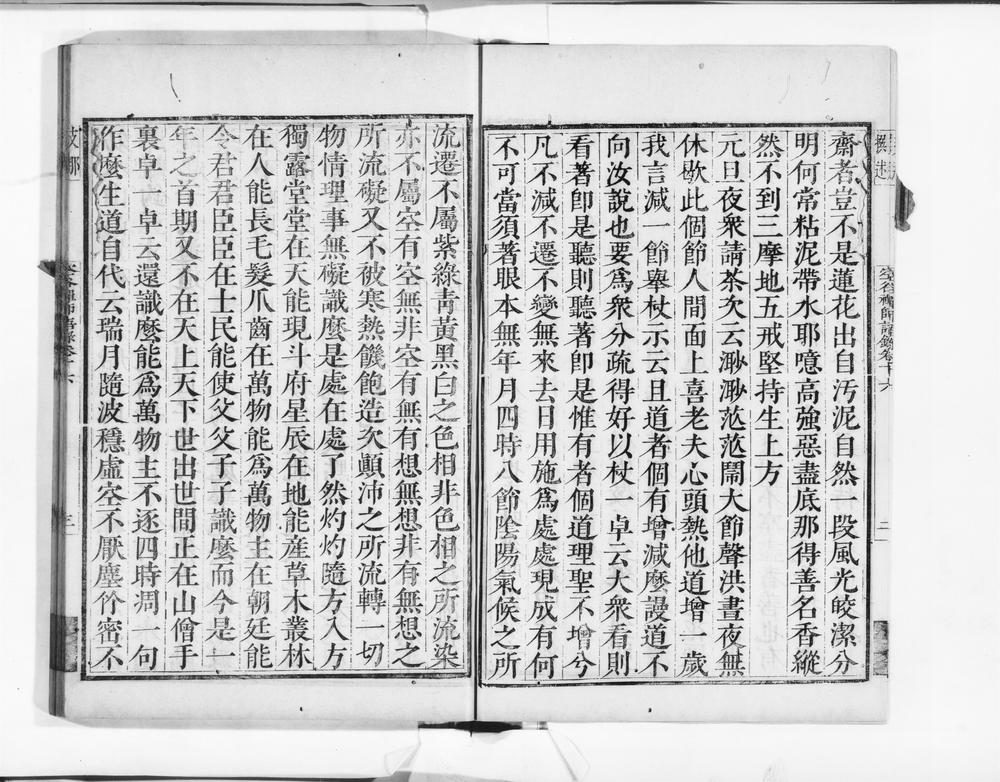 齋者豈不是蓮花出自汚泥自然一段風光皎潔分
明何常粘泥帶水耶噫高強惡盡底那得善名香縱
然不到三摩地五戒堅持生上方
元旦夜衆請茶次云渺渺茫茫鬧大節聲洪晝夜無
休歇此個節人間面上喜老夫心頭熱他道增一歲
我言減一節舉杖示云且道者個有增減麼謾道不
向汝說也要爲衆分疏得好以杖一卓云大衆看則
看著卽是聽則聽著卽是惟有者個道理聖不增兮
凡不減不遷不變無來去日用施爲處處現成有何
不可當須著眼本無年月四時八節陰陽氣候之所
流遷不屬紫綠靑黃黑白之色相非色相之所流染
亦不屬空有空無非空有無有想無想非有無想之
所流礙又不被寒熱饑飽造次顚沛之所流轉一切
物情理事無礙識麼是處在處了然灼灼隨方入方
獨露堂堂在天能現斗府星辰在地能産草木叢林
在人能長毛髮爪齒在萬物能爲萬物主在朝廷能
令君君臣臣在士民能使父父子子識麼而今是一
年之首期又不在天上天下世出世間正在山僧手
裏卓一卓云還識麼能爲萬物主不逐四時凋一句
作麼生道自代云瑞月隨波穩虛空不厭塵竹密不